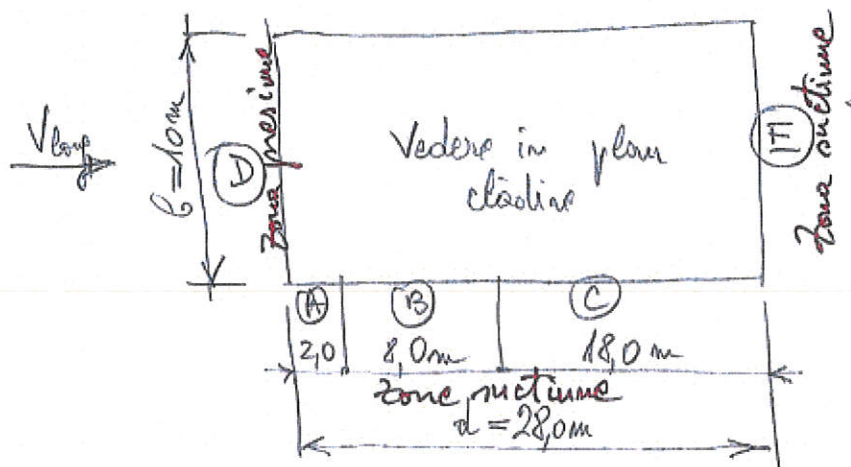 V long
b = 10m
D
zona presiune
Vedere in plan
clădire
E
zona suctiune
A
B
C
2,0
8,0m
18,0m
zone suctiune
d = 28,0m